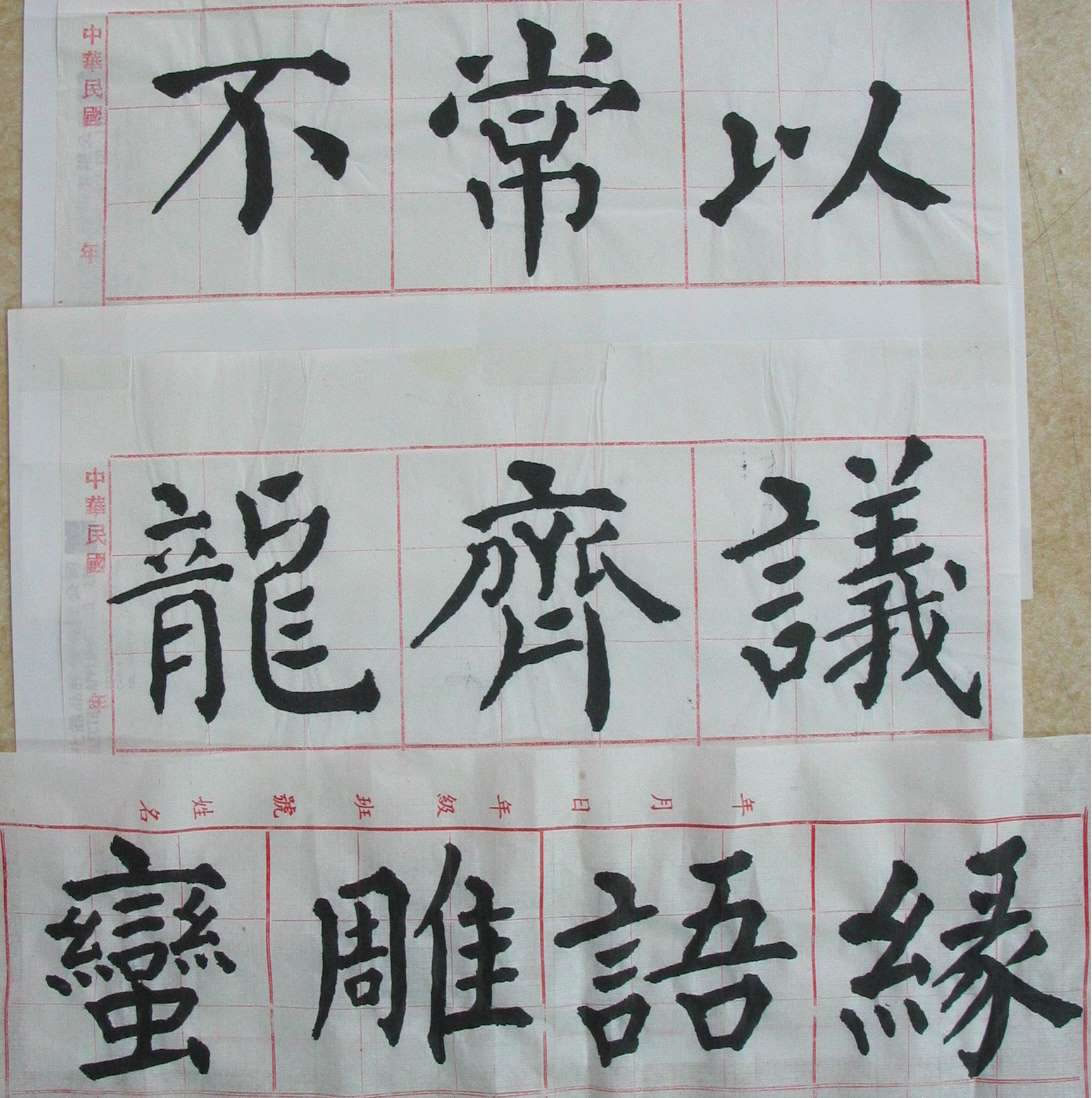 中華民國
年
不常以
中華民國
年
龍齊議
年 月 日 年級 班 號 姓名
蠻雕語緣